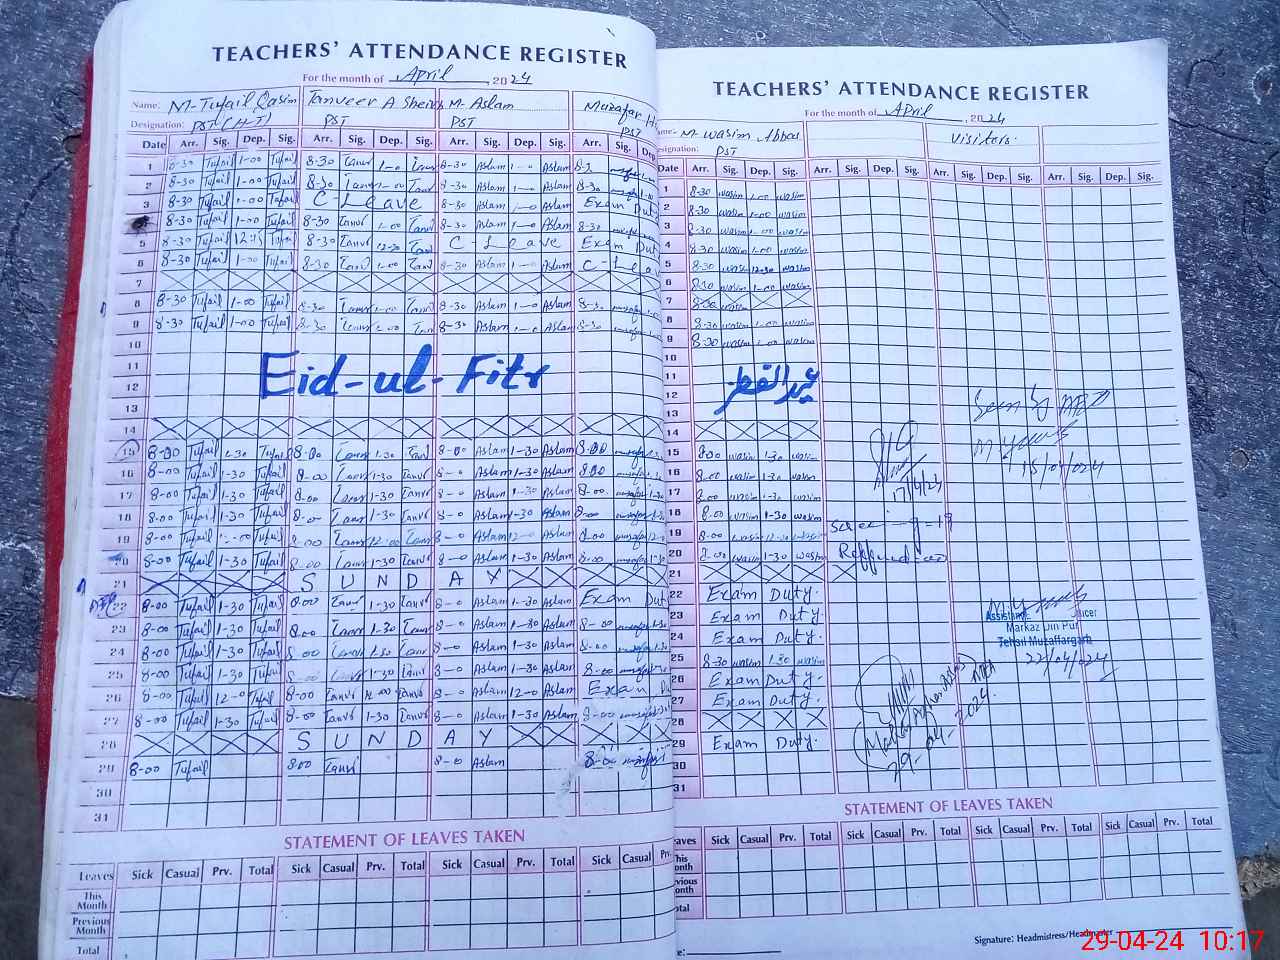 TEACHERS' ATTENDANCE REGISTER
For the month of April, 2024
Name: M-Tufail Qasim Tanveer A M-Aslam Muzafar
Designation: PST (H-T) PST PST PST
Date Arr. Sig. Dep. Sig. Arr. Sig. Dep. Sig. Arr. Sig. Dep. Sig. Arr. Sig. Dep.
1 8-30 Tufail 1-00 Tufail 8-30 Tanvr 1-0 Tanvr 8-30 Aslam 1-0 Aslam
2 8-30 Tufail 1-00 Tufail 8-30 Tanvr 1-00 Tanvr 8-30 Aslam 1-0 Aslam 8-30
3 8-30 Tufail 1-00 Tufail C-Leave 8-30 Aslam 1-0 Aslam Exam Dut
8-30 Tufail 1-00 Tufail 8-30 Tanvr 1-00 Tanvr 8-30 Aslam 1-0 Aslam 8-30
5 8-30 Tufail Tufail 8-30 Tanvr 12-30 Tanvr C-Leave Exam Dut
6 8-30 Tufail 1-00 Tufail 8-30 Tanvr 1-00 Tanvr 8-30 Aslam 1-0 Aslam C-Leav
7
8 8-30 Tufail 1-00 Tufail 8-30 Tanvr 1-00 Tanvr 8-30 Aslam 1-0 Aslam 8-30
9 8-30 Tufail 1-00 Tufail 8-30 Tanvr 1-00 Tanvr 8-30 Aslam 1-0 Aslam 8-30
10
11
12 Eid-ul-Fitr
13
14
15 8-00 Tufail 1-30 Tufail 8-00 Tanvr 1-30 Tanvr 8-00 Aslam 1-30 Aslam 8-00
16 8-00 Tufail 1-30 Tufail 8-00 Tanvr 1-30 Tanvr 8-00 Aslam 1-30 Aslam 8-00
17 8-00 Tufail 1-30 Tufail 8-00 Tanvr 1-30 Tanvr 8-0 Aslam 1-30 Aslam 8-00
18 8-00 Tufail 1-30 Tufail 8-00 Tanvr 1-30 Tanvr 8-0 Aslam 1-30 Aslam 8-00
19 8-00 Tufail Tufail 8-00 Tanvr 12-00 Tanvr 8-0 Aslam 12-0 Aslam 8-00
20 8-00 Tufail 1-30 Tufail 8-00 Tanvr 1-30 Tanvr 8-0 Aslam 1-30 Aslam 8-00
21 SUNDAY
22 8-00 Tufail 1-30 Tufail 8-00 Tanvr 1-30 Tanvr 8-0 Aslam 1-30 Aslam Exam Dut
23 8-00 Tufail 1-30 Tufail 8-00 Tanvr 1-30 Tanvr 8-0 Aslam 1-30 Aslam 8-00
24 8-00 Tufail 1-30 Tufail 8-00 Tanvr 1-30 Tanvr 8-0 Aslam 1-30 Aslam 8-00
25 8-00 Tufail 1-30 Tufail 8-00 Tanvr 1-30 Tanvr 8-0 Aslam 1-30 Aslam 8-00
26 8-00 Tufail 12-0 Tufail 8-00 Tanvr 12-00 Tanvr 8-0 Aslam 12-0 Aslam Exam Du
27 8-00 Tufail 1-30 Tufail 8-00 Tanvr 1-30 Tanvr 8-0 Aslam 1-30 Aslam 8-00
28 SUNDAY
29 8-00 Tufail 8-00 Tanvr 8-0 Aslam 8-00
30
31
STATEMENT OF LEAVES TAKEN
Leaves Sick Casual Prv. Total Sick Casual Prv. Total Sick Casual Prv. Total Sick Casual Prv.
This Month
Previous Month
Total
TEACHERS' ATTENDANCE REGISTER
For the month of April, 2024
M-Wasim Abbas Visitors
esignation: PST
Date Arr. Sig. Dep. Sig. Arr. Sig. Dep. Sig. Arr. Sig. Dep. Sig. Arr. Sig. Dep. Sig.
1 8-30 wasim 1-00 wasim
2 8-30 wasim 1-00 wasim
3 8-30 wasim 1-00 wasim
4 8-30 wasim 1-00 wasim
5 8-30 wasim 12-30 wasim
6 8-30 wasim 1-00 wasim
7 8-30 wasim
8 8-30 wasim 1-00 wasim
9 8-30 wasim 1-00 wasim
10
11
12 عید الفطر
13 Seen by AEO
14
15 8-00 wasim 1-30 wasim 15/04/024
16 8-00 wasim 1-30 wasim
17 8-00 wasim 1-30 wasim 17/4/24
18 8-00 wasim 1-30 wasim
19 8-00 wasim 12-30 wasim
20 8-00 wasim 1-30 wasim
21
22 Exam Duty.
23 Exam Duty. Assistant
24 Exam Duty. Markaz Din Pur
Tehsil Muzaffargarh
25 8-30 wasim 1-30 wasim 22/04/024
26 Exam Duty.
27 Exam Duty.
28
29 Exam Duty. 29-04-2024
30
31
STATEMENT OF LEAVES TAKEN
eaves Sick Casual Prv. Total Sick Casual Prv. Total Sick Casual Prv. Total Sick Casual Prv. Total
This
onth
vious
onth
otal
Signature: Headmistress/Headmaster
29-04-24 10:17